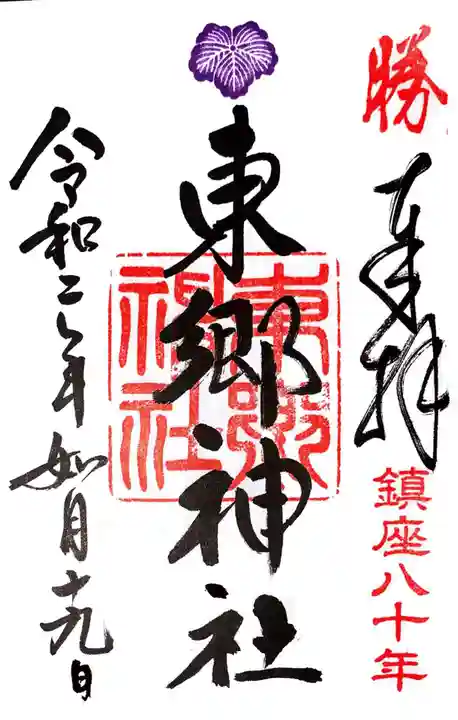 勝
奉拝
鎮座八十年
東郷神社
東郷神社
令和二年如月十九日